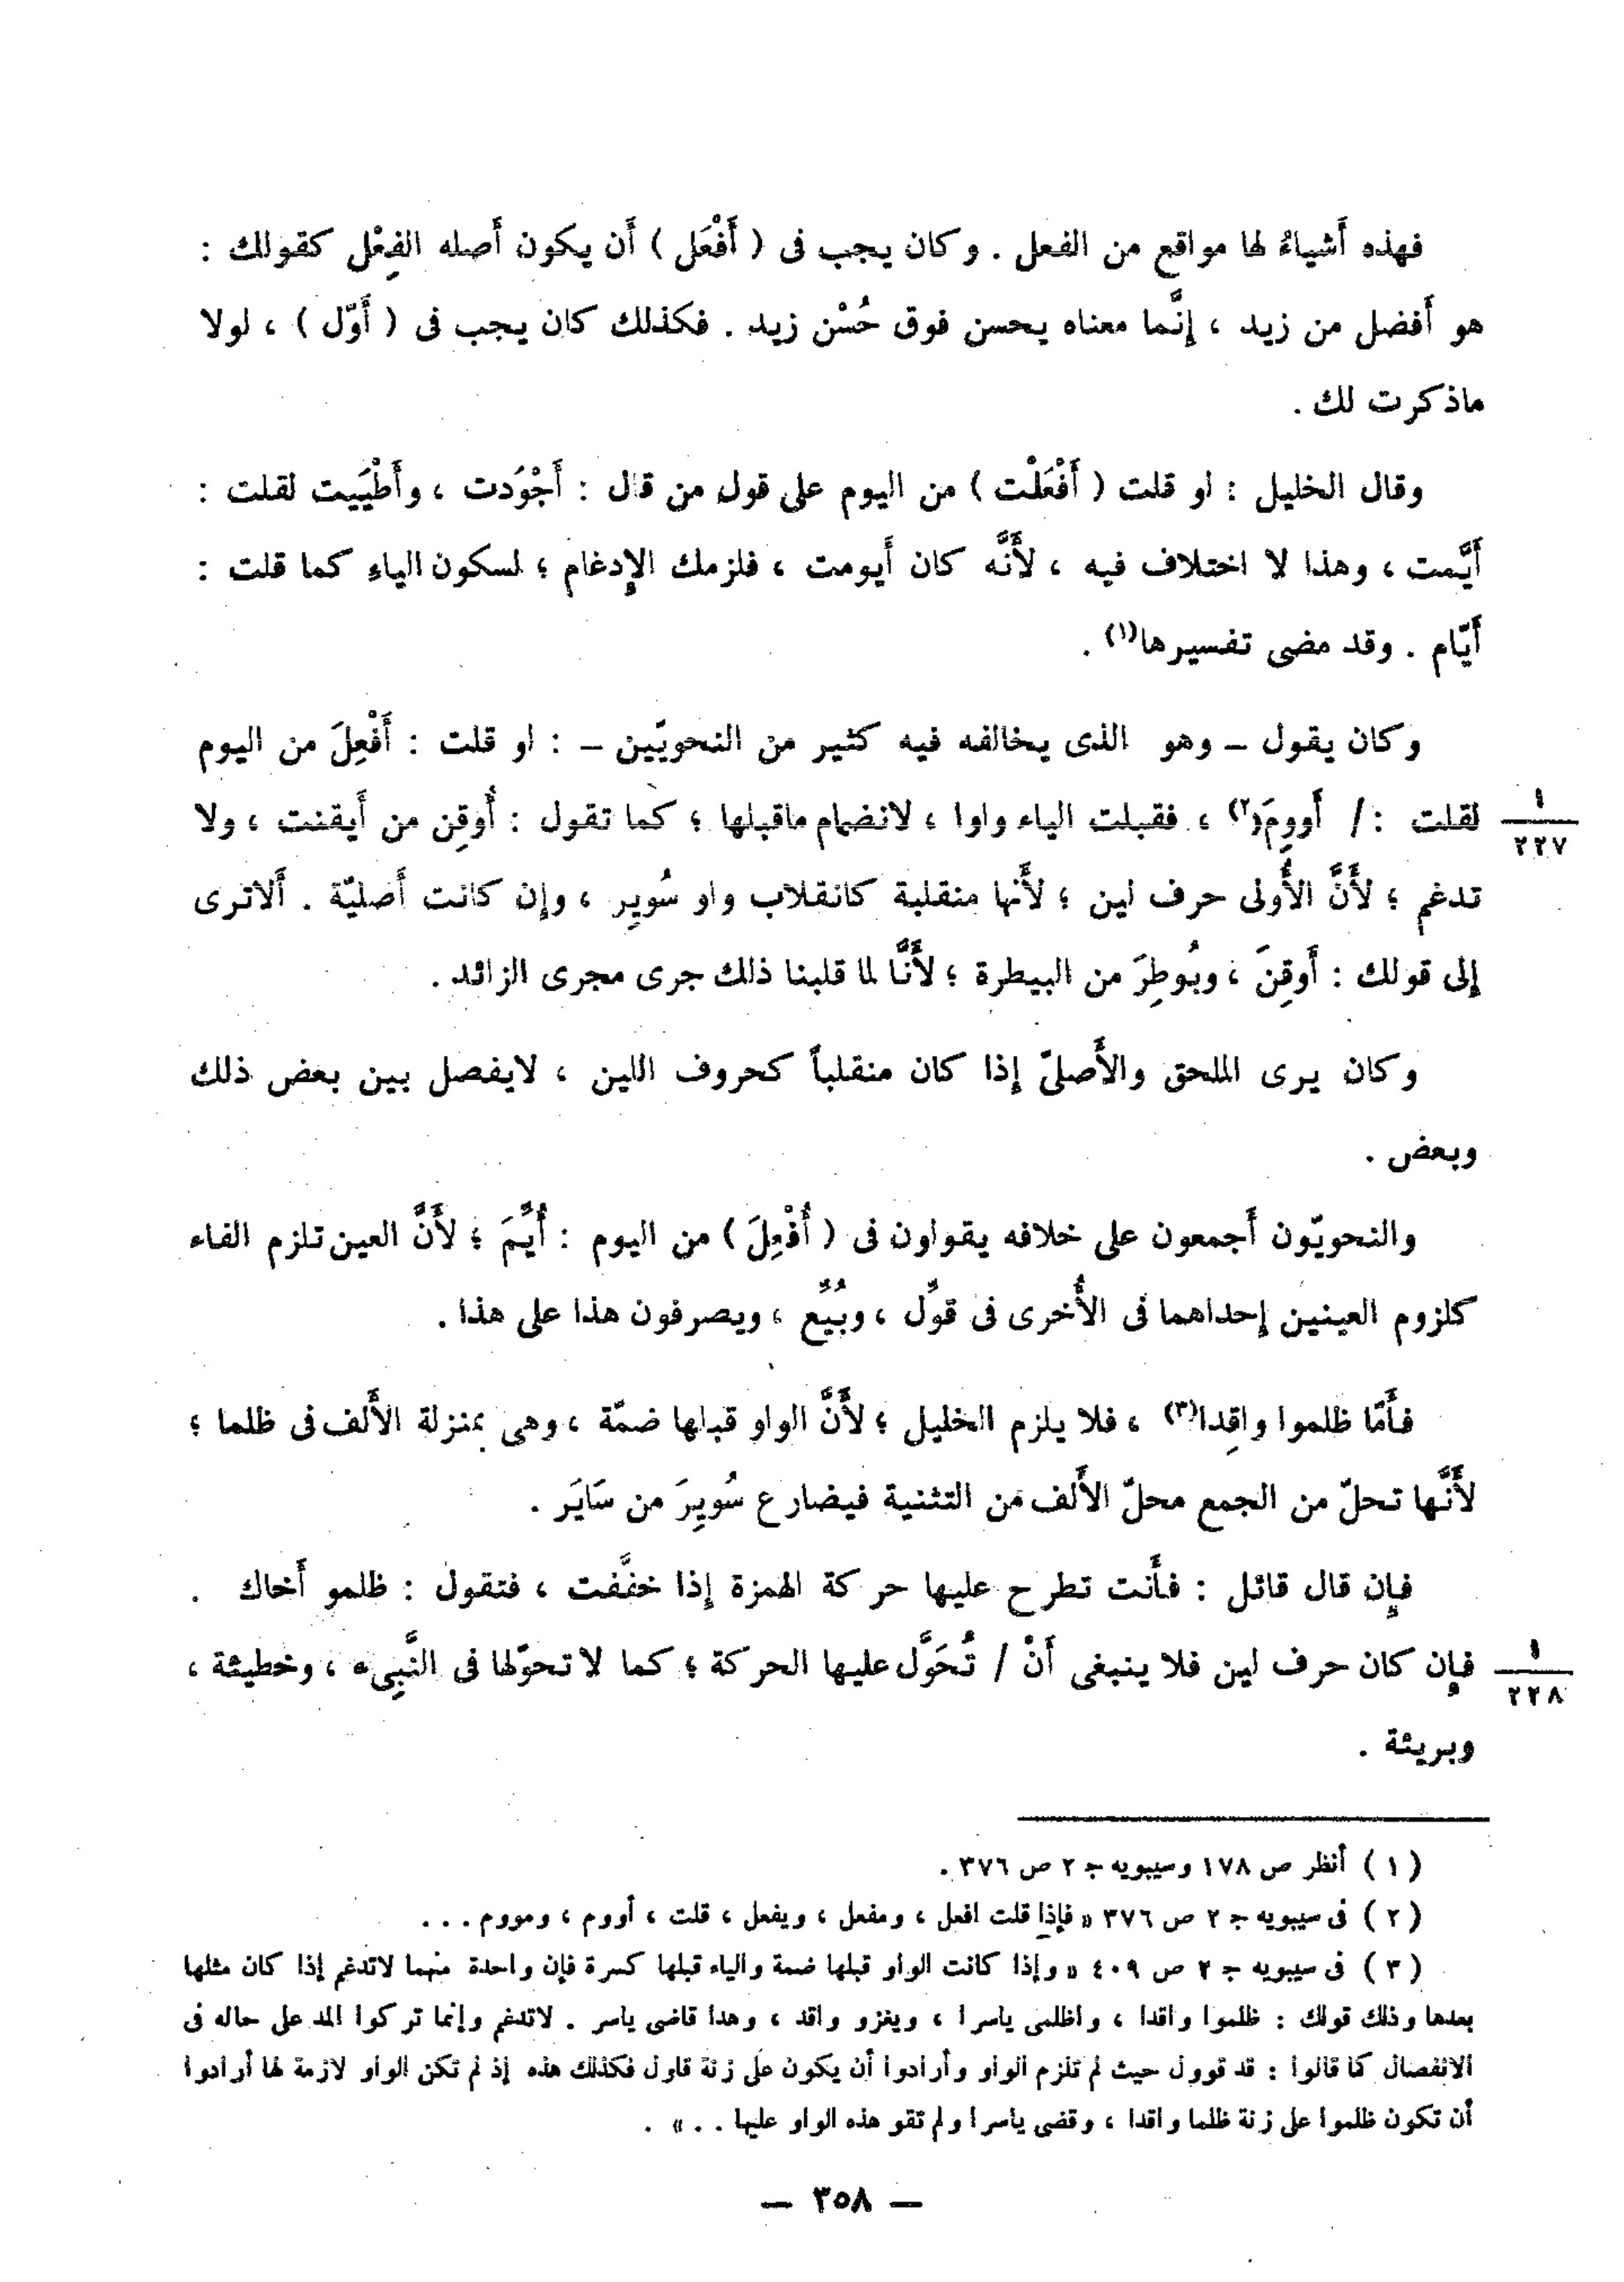 فهذه أَشياءُ لها مواقع من الفعل . وكان يجب فى ( أَفْعَل ) أَن يكون أَصله الفِعْل كقولك :
هو أَفضل من زيد ، إِنَّما معناه يحسن فوق حُسْن زيد . فكذلك كان يجب فى ( أَوّل ) ، لولا
ماذكرت لك .
وقال الخليل : او قلت ( أَفْعَلْت ) من اليوم على قول من قال : أَجْوَدت ، وأَطْيَبت لقلت :
أَيَّمت ، وهذا لا اختلاف فيه ، لأَنَّه كان أَيومت ، فلزمك الإِدغام ؛ لسكون الياءِ كما قلت :
أَيّام . وقد مضى تفسيرها(١) .
وكان يقول – وهو الذى يخالفه فيه كثير من النحويّين – : او قلت : أَفْعِلَ من اليوم
لقلت : / أَووِمَ(٢) ، فقبلت الياء واوا ، لانضمام ماقبلها ؛ كما تقول : أُوقِن من أَيقنت ، ولا
١
٢٢٧
تدغم ؛ لأَنَّ الأُولى حرف لين ؛ لأَنها منقلبة كانقلاب واو سُويِر ، وإن كانت أَصليّة . أَلاترى
إِلى قولك : أَوقِنَ ، وبُوطِرَ من البيطرة ؛ لأَنَّا لما قلبنا ذلك جرى مجرى الزائد .
وكان يرى الملحق والأَصلىّ إِذا كان منقلباً كحروف اللين ، لايفصل بين بعض ذلك
وبعض .
والنحويّون أَجمعون على خلافه يقواون فى ( أُفْعِلَ ) من اليوم : أُيِّمَ ؛ لأَنَّ العين تلزم الفاء
كلزوم العينين إِحداهما فى الأُخرى فى قوِّل ، وبُيِّع ، ويصرفون هذا على هذا .
فأَمّا ظلموا واقِدا(٣) ، فلا يلزم الخليل ؛ لأَنَّ الواو قبلها ضمّة ، وهى بمنزلة الأَلف فى ظلما ؛
لأَنَّها تحلّ من الجمع محلّ الأَلف من التثنية فيضارع سُويِرَ من سَايَر .
فإِن قال قائل : فأَنت تطرح عليها حركة الهمزة إِذا خفَّفت ، فتقول : ظلمو أَخاك .
فإِن كان حرف لين فلا ينبغى أَنْ / تُحَوَّل عليها الحركة ؛ كما لا تحوّلها فى النَّبِىء ، وخطيئة ،
١
٢٢٨
وبريئة .
( ١ ) أنظر ص ١٧٨ وسيبويه ج ٢ ص ٣٧٦ .
( ٢ ) فى سيبويه ج ٢ ص ٣٧٦ « فإذا قلت افعل ، ومفعل ، ويفعل ، قلت ، أووم ، ومووم . . .
( ٣ ) فى سيبويه ج ٢ ص ٤٠٩ « وإذا كانت الواو قبلها ضمة والياء قبلها كسرة فإن واحدة منهما لاتدغم إذا كان مثلها
بعدها وذلك قولك : ظلموا واقدا ، واظلمى ياسرا ، ويغزو واقد ، وهدا قاضى ياسر . لاتدغم وإنما تركوا المد على حاله فى
الانفصال كما قالوا : قد قوول حيث لم تلزم الواو وأرادوا أن يكون على زنة قاول فكذلك هذه إذ لم تكن الواو لازمة لها أرادوا
أن تكون ظلموا على زنة ظلما واقدا ، وقضى ياسرا ولم تقو هذه الواو عليها . . » .
— ٣٥٨ —